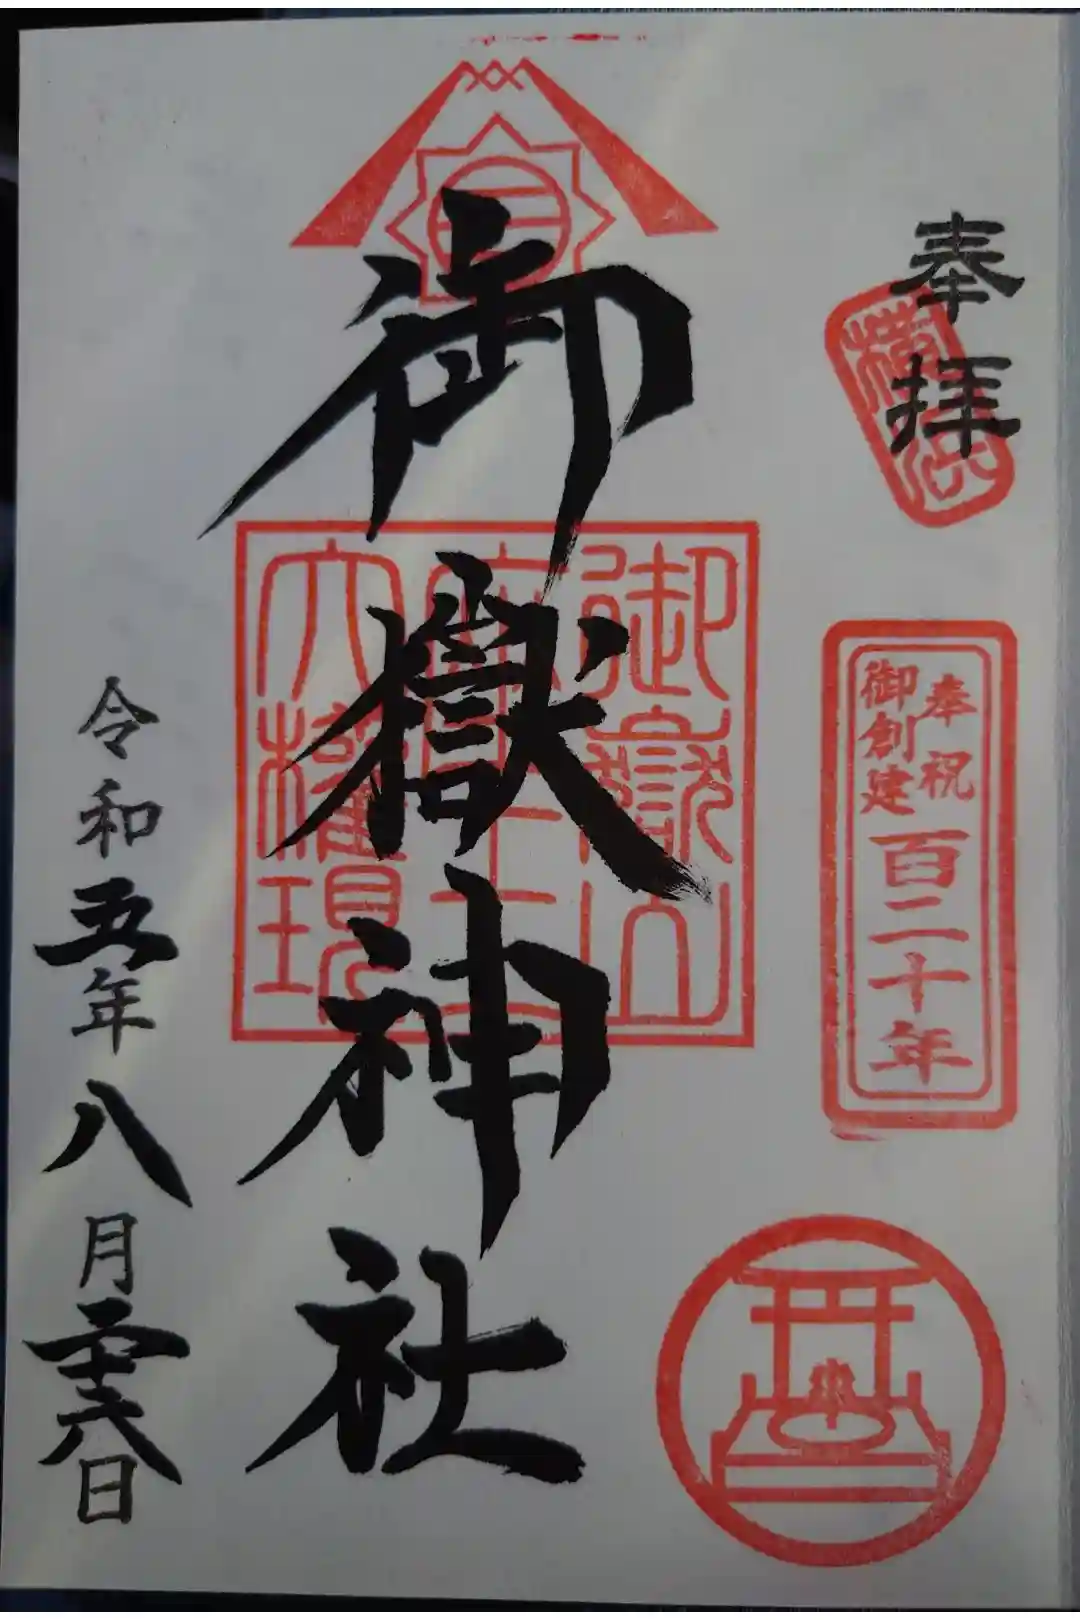 奉拝
横浜
奉祝
御創建
百二十年
御嶽神社
御嶽山
座王
大権現
令和五年八月二十六日